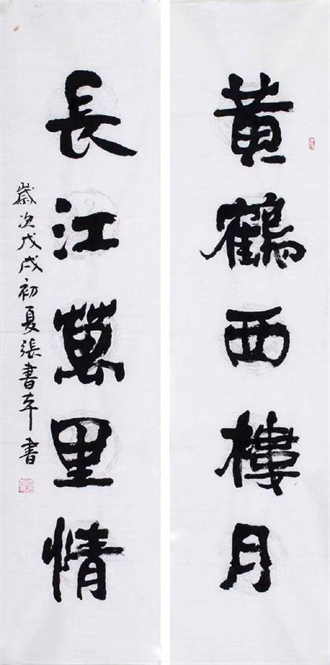 黄鶴西樓月
長江萬里情
歲次戊戌初夏張書年書